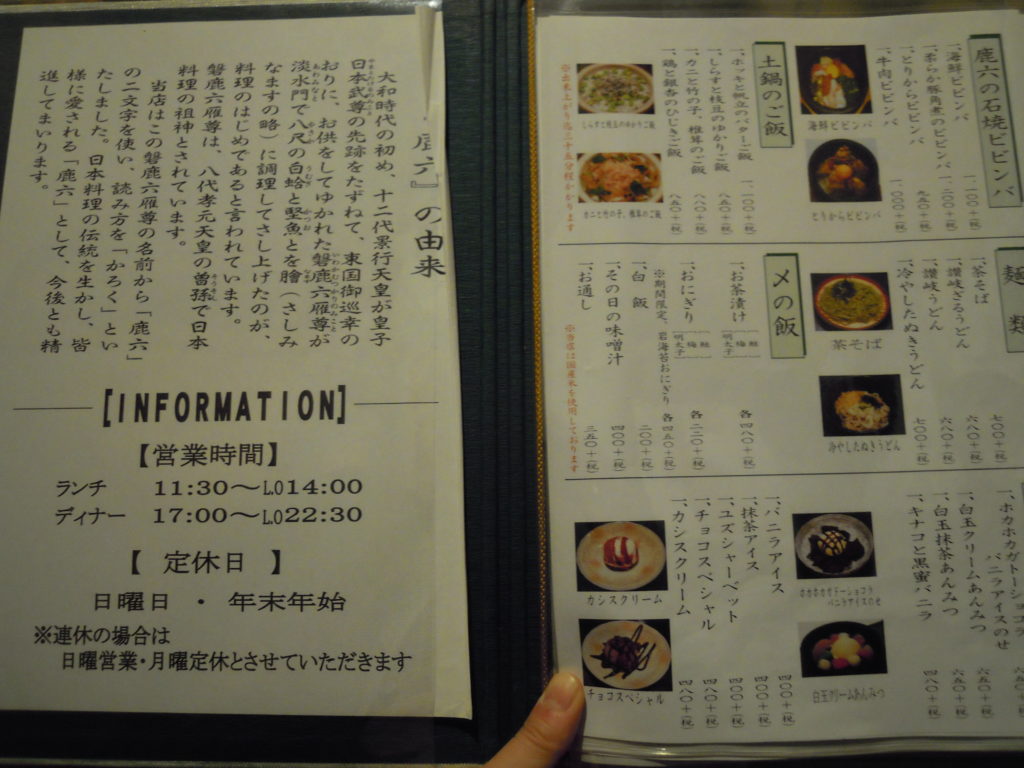 『鹿六』の由来
大和時代の初め、十二代景行天皇が皇子
日本武尊の先跡をたずねて、東国御巡幸の
おりに、お供をしてゆかれた磐鹿六雁尊が
淡水門で八尺の白蛤と堅魚とを膾(さしみ
なますの略)に調理してさし上げたのが、
料理のはじめであると言われています。
磐鹿六雁尊は、八代孝元天皇の曽孫で日本
料理の祖神とされています。
当店はこの磐鹿六雁尊の名前から「鹿六」
の二文字を使い、読み方を「かろく」とい
たしました。日本料理の伝統を生かし、皆
様に愛される「鹿六」として、今後とも精
進してまいります。
【INFORMATION】
【営業時間】
ランチ 11:30～L.O14:00
ディナー 17:00～L.O22:30
【 定休日 】
日曜日・年末年始
※連休の場合は
日曜営業・月曜定休とさせていただきます
鹿六の石焼ビビンバ
一、海鮮ビビンバ 一、一〇〇+(税)
一、柔らか豚角煮のビビンバ 一、二〇〇+(税)
一、とりからビビンバ 九五〇+(税)
一、牛肉ビビンバ 一、〇〇〇+(税)
海鮮ビビンバ
とりからビビンバ
土鍋のご飯
一、ホッキと帆立のバターご飯 一、一〇〇+(税)
一、しらすと枝豆のゆかりご飯 八五〇+(税)
一、カニと竹の子、椎茸のご飯 八八〇+(税)
一、鶏と銀杏のひじきご飯 八五〇+(税)
※出来上がり迄二十五分程かかります
しらすと枝豆のゆかりご飯
カニと竹の子、椎茸のご飯
麺類
一、茶そば 七〇〇+(税)
一、讃岐ざるうどん 六八〇+(税)
一、讃岐うどん 六八〇+(税)
一、冷やしたぬきうどん 七〇〇+(税)
茶そば
冷やしたぬきうどん
〆の飯
一、お茶漬け 鮭 梅 明太子 各四八〇+(税)
一、おにぎり 鮭 梅 明太子 各二二〇+(税)
※期間限定、岩海苔おにぎり 各四五〇+(税)
一、白飯 二〇〇+(税)
一、その日の味噌汁 四〇〇+(税)
一、お通し 三五〇+(税)
※当店は国産米を使用しております
一、ホカホカガトーショコラ
バニラアイスのせ
一、白玉クリームあんみつ 六五〇+(税)
一、白玉抹茶あんみつ 六五〇+(税)
一、キナコと黒蜜バニラ 四八〇+(税)
ホカホカガトーショコラ
バニラアイスのせ
白玉クリームあんみつ
一、バニラアイス 三〇〇+(税)
一、抹茶アイス 三〇〇+(税)
一、ユズシャーベット 三〇〇+(税)
一、チョコスペシャル 四八〇+(税)
一、カシスクリーム 四八〇+(税)
カシスクリーム
チョコスペシャル